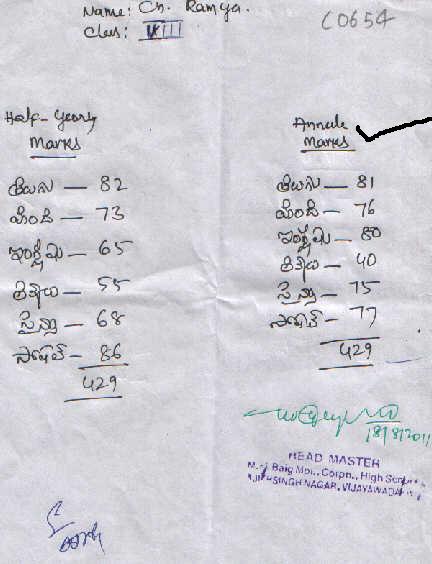 Name: Ch. Ramya.
Class: VIII
C0654
Half-yearly
Marks
తెలుగు — 82
హిందీ — 73
ఇంగ్లీషు — 65
లెక్కలు — 55
సైన్సు — 68
సోషల్ — 86
429
Annule
Marks
తెలుగు — 81
హిందీ — 76
ఇంగ్లీషు — 80
లెక్కలు — 40
సైన్సు — 75
సోషల్ — 77
429
18/8/2011
HEAD MASTER
Baig Mpl. Corpn., High School
SINGH NAGAR, VIJAYAWADA